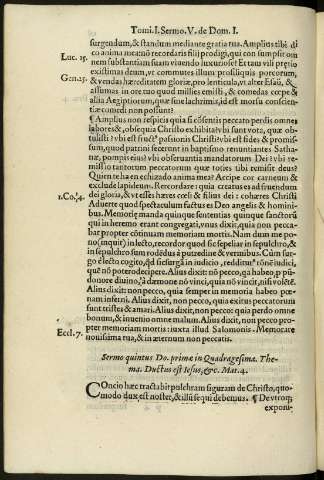 Tomi. I. Sermo. V. de Dom. I.
surgendum, & standum mediante gratia tua. Amplius tibi di
co anima mea: nõ recordaris filij prodigi, qui con sumpsit om
nem substantiam suam viuendo luxuriose? Et tam vili pretio
existimas deum, vt commutes illum pro siliquis porcorum,
Luc. 15.
& vendas hæreditatem gloriæ, pro lenticula, vt alter Esaû, &
Gen. 25.
assumas in ore tuo quod milites emisti, & comedas corpora
alia Aegiptiorum, quæ sine lachrimis, id est morsu conscien-
tiæ comedi non possunt?
¶ Amplius non respicis quia si cõsentis peccato perdis omnes
labores & obsequia Christo exhibita? vbi sunt vota, quæ ob-
tulisti? vbi est fruct9 passionis Christi? vbi est fides & promis-
sum, quod patrini fecerunt in baptismo renuntiantes Satha-
næ, pompis eius? vbi obseruantia mandatorum Dei? vbi re-
missio tantorum peccatorum quæ toties tibi remisit deus?
Quien te ha en echizado anima mea? Accipe cor carneum &
exclude lapideum. Rercordare: quia creatus es ad fruendum
dei gloria, & vt esses hæres cœli & filius dei: cohæres Christi
1. Co. 4.
Aduerte quod spectaculum factus es Deo angelis & homini-
bus. Memoriæ manda quinque sententias quinque sanctorũ
qui in heremo erant congregati, vnus dixit, quia non pecca-
bat propter cõtinuam memoriam mortis. Nam dum me po-
no (inquit) in lecto, recordor quod sic sepeliar in sepulchro, &
in sepulchro sum rodẽdus à putredine & vermibus. Cùm sur-
go è lecto cogito, qd sic surgã in iudicio, redditur9 rõnẽ iudici,
quẽ nõ potero decipere. Alius dixit: nõ pecco, qa habeo, p pũ-
donore diuino, à dæmone nõ vinci, quia nõ vincit, nisi volẽtẽ.
Alius dixit: non pecco, quia semper in memoria habeo pœ-
nam inferni. Alius dixit, non pecco, quia exitus peccatorum
sunt tristes & amari. Alius dixit, non pecco: quia perdo omne
bonum, & inuenio omne malum. Alius dixit, non pecco pro-
pter memoriam mortis: iuxta illud Salomonis. Memorare
Eccl. 7.
nouissima tua, & in æternum non peccabis.
Sermo quintus Do. primæ in Quadragesima. The-
ma. Ductus est Iesus, &c. Mat. 4.
COncio hæc tractabit pulchram figuram de Christo, quo-
modo dux est noster, & illũ sequi debemus. ¶ De vtroq;
exponi-